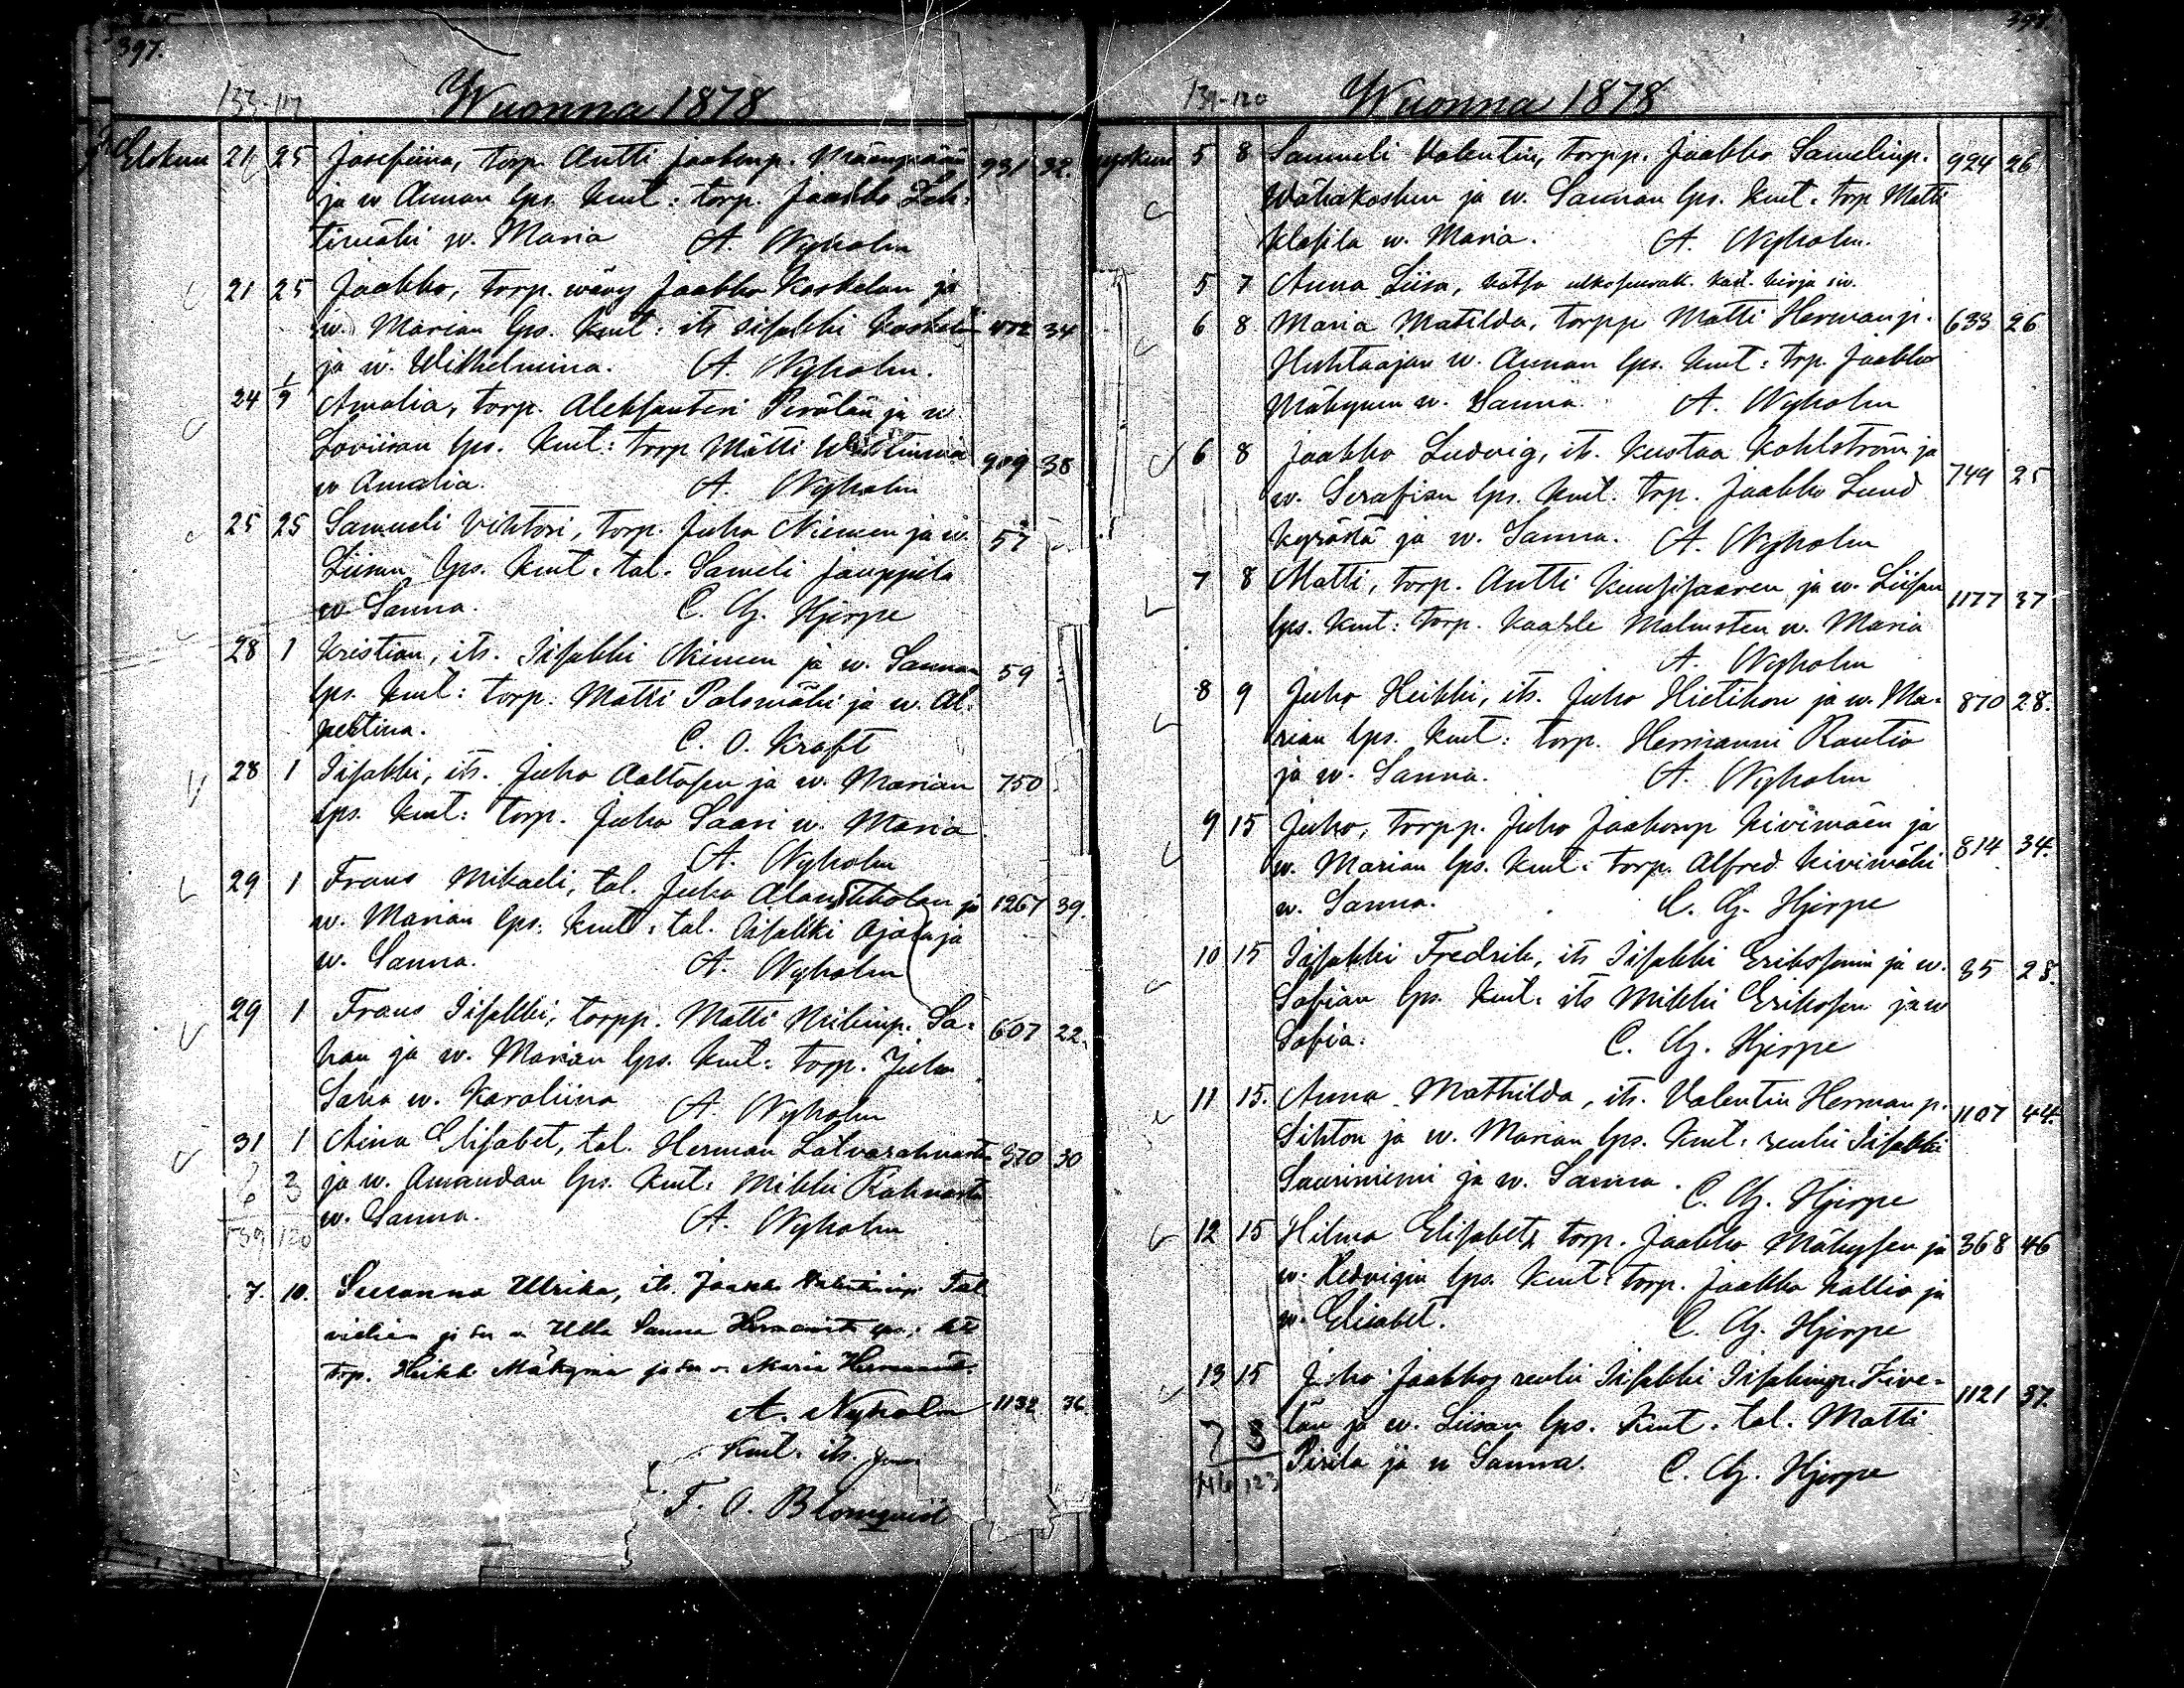 397.
133-117
Wuonna 1878
Elokuu 21 25 Josefiina, torp. Antti Jaakonp. Mäenpään 931 32.
ja w Annan lps. kmt: torp. Jaakko Leh-
timäki w. Maria A. Nyholm
21 25 Jaakko, torp. wäwy Jaakko Koskelan ja
w. Marian lps. kmt: its Iisakki Koskela 472 34
ja w. Wilhelmina. A. Nyholm.
24 1/9 Amalia, torp. Aleksanteri Perälän ja w
Loviisan lps. kmt: torp Matti 909 38
w Amalia. A. Nyholm
25 25 Samueli Vihtori, torp. Juho Niemen ja w. 57
Liisan lps. kmt: tal. Sameli Jauppila
w Sanna. C. G. Hjerpe
28 1 Kristian, its. Iisakki Niemen ja w. Sannan 59
lps. kmt: torp. Matti Palomäki ja w. Al-
pertina. C. O. Kraft
28 1 Iisakki, its. Juho Aaltosen ja w. Marian 750
lps. kmt: torp. Juho Saari w. Maria
A. Nyholm
29 1 Frans Mikaeli, tal. Juha ja 1267 39.
w. Marian lps. kmt: tal. Iisakki Ojala ja
w. Sanna. A. Nyholm
29 1 Frans Iisakki, torpp. Matti Sa- 607 22.
han ja w. Marian lps. kmt: torp. Juha
Saha w. Karoliina A. Nyholm
31 1 Aina Elisabet, tal. Herman Latvarahnasto 370 30
6 3 ja w. Amandan lps. kmt: Mikki Rahnasto
w. Sanna. A. Nyholm
139 120
7. 10. Susanna Ulrika, its. Jaakko
ja w Ulla Sanna
torp. Heikki Mäkynen ja w Maria
A. Nyholm 1132 36.
kmt: its.
F. O. Blomquist
398
139-120
Wuonna 1878
syyskuu 5 8 Samueli Valentin, torpp. Jaakko Samelinp. 924 26
Wähäkosken ja w. Sannan lps. kmt: torp Matti
Klasila w. Maria. A. Nyholm.
5 7 Anna Liisa, katso ulkoseurak. kast. kirja siv.
6 8 Maria Matilda, torpp Matti Hermanp. 633 26
Huhtaojan w. Annan lps. kmt: trp. Jaakko
Mäkynen w. Sanna. A. Nyholm
6 8 Jaakko Ludvig, it. Kustaa Kohlström ja 749 25
w. Serafian lps. kmt: trp. Jaakko Lund
kyröstä ja w. Sanna. A. Nyholm
7 8 Matti, torp. Antti Kuusisaaren ja w. Liisan 1177 37
lps. kmt: torp. Kaarle Malmsten w. Maria
A. Nyholm
8 9 Juho Heikki, its. Juho Hietikon ja w. Ma- 870 28.
rian lps. kmt: torp. Hermanni Rautio
ja w. Sanna. A. Nyholm
9 15 Juho, torpp. Juho Jaakonp Kivimäen ja
w. Marian lps. kmt: torp. Alfred Kivimäki 814 34.
w. Sanna. C. G. Hjerpe
10 15 Iisakki Fredrik, its Iisakki Eriksonin ja w. 85 28.
Sofian lps. kmt: its Mikki Erikson ja w
Sofia. C. G. Hjerpe
11 15. Anna Mathilda, its. Valentin Herman p. 1107 44.
Sihton ja w. Marian lps. kmt: renki Iisakki
Sauriniemi ja w. Sanna. C. G. Hjerpe
12 15 Hilma Elisabet, torp. Jaakko Mäkysen ja 368 46
w. Hedvigin lps. kmt: torp. Jaakko Kallio ja
w. Elisabet. C. G. Hjerpe
13 15 Juho Jaakko, renki Iisakki Iisakinp. Live- 1121 37.
7 3 län ja w. Liisan lps. kmt: tal. Matti
146 123 Pirila ja w Sanna. C. G. Hjerpe